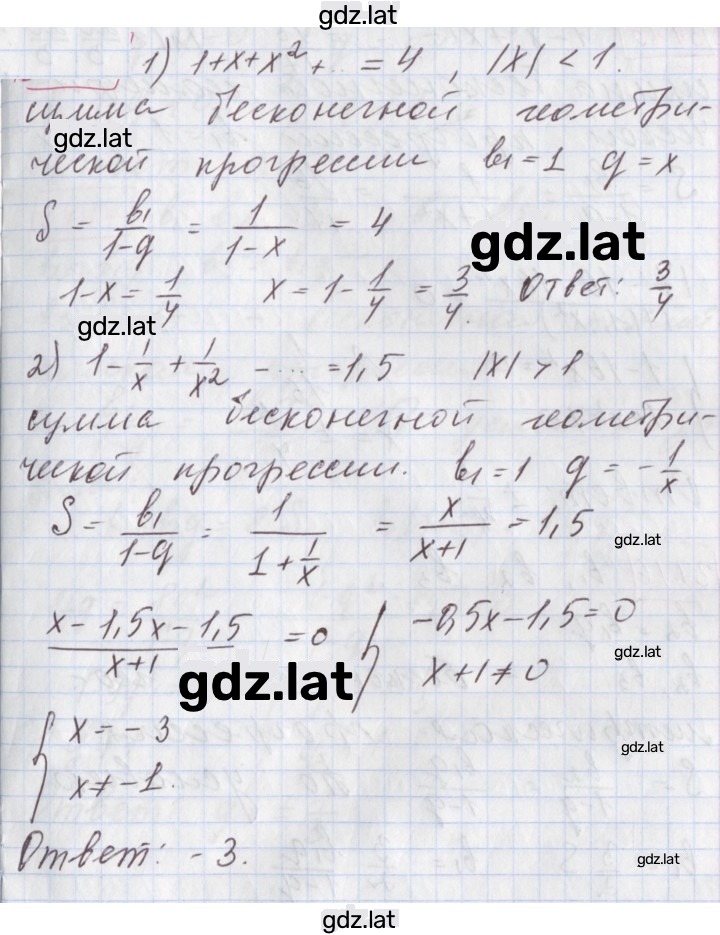 gdz.lat
1) 1+x+x² + ... = 4 , |x| < 1.
сумма бесконечной геометри-
gdz.lat
ческой прогрессии b₁ = 1 q = x
S = b₁/(1-q) = 1/(1-x) = 4
gdz.lat
1-x = 1/4 x = 1 - 1/4 = 3/4. Ответ: 3/4
gdz.lat
2) 1 - 1/x + 1/x² - ... = 1,5 |x| > 1
сумма бесконечной геометри-
ческой прогрессии. b₁ = 1 q = -1/x
S = b₁/(1-q) = 1/(1 + 1/x) = x/(x+1) = 1,5
gdz.lat
(x - 1,5x - 1,5)/(x+1) = 0 { -0,5x - 1,5 = 0
x + 1 ≠ 0
gdz.lat
gdz.lat
{ x = -3
x ≠ -1.
gdz.lat
Ответ: -3.
gdz.lat
gdz.lat